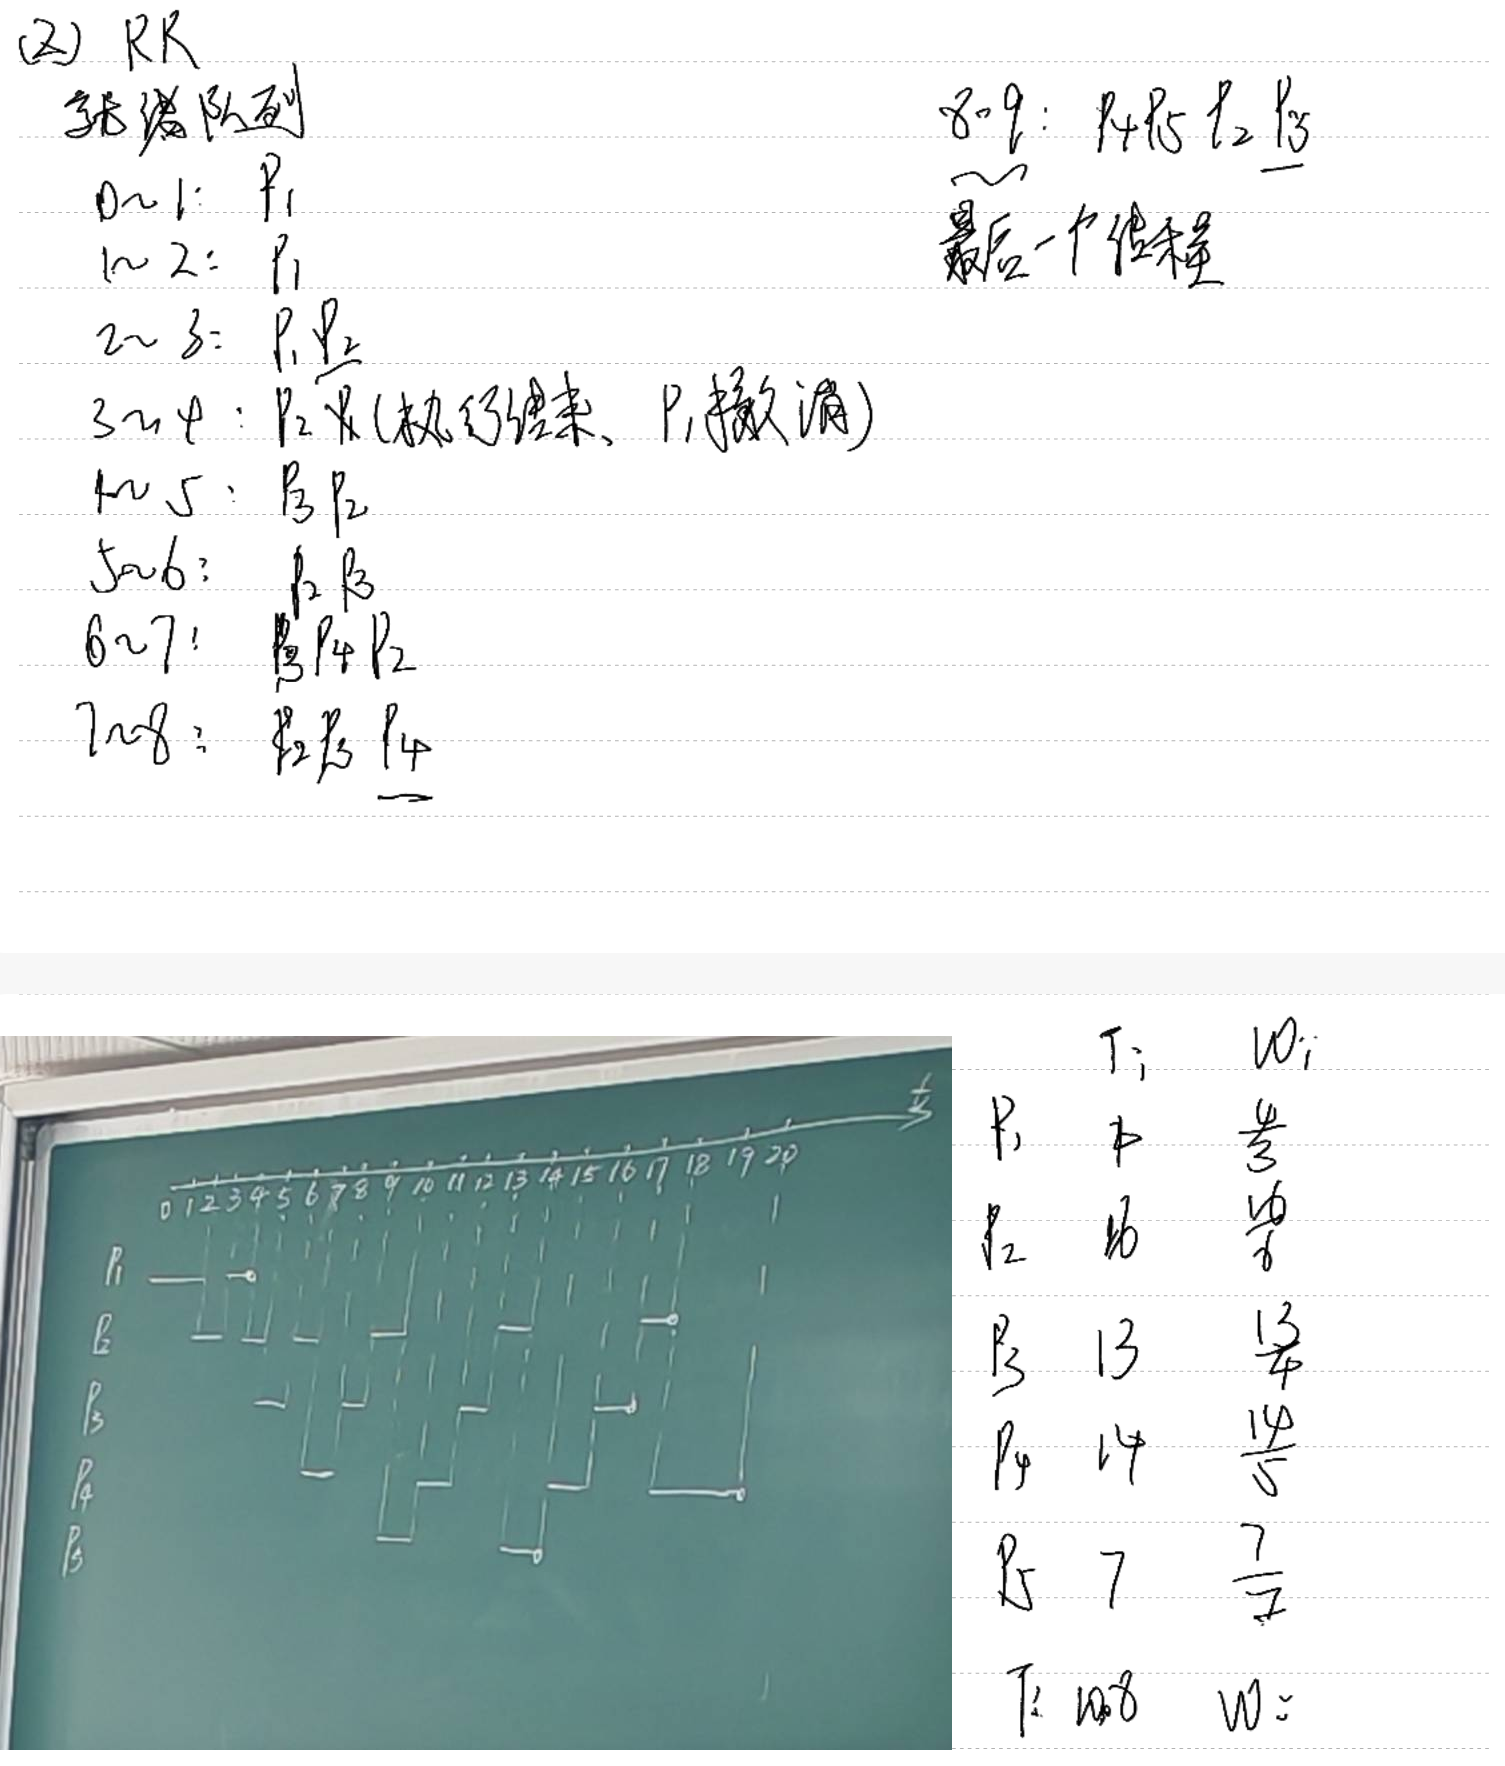 (2) RR
就绪队列
0~1: P1
1~2: P1
2~3: P1 P2
3~4: P2 P1 (执行结束、P1撤消)
4~5: P3 P2
5~6: P2 P3
6~7: P3 P4 P2
7~8: P2 P3 P4
8~9: P4 P5 P2 P3
最后一个
0 1 2 3 4 5 6 7 8 9 10 11 12 13 14 15 16 17 18 19 20
P1
P2
P3
P4
P5
Ti Wi
P1 4 4/3
P2 16 16/6
P3 13 13/4
P4 14 14/5
P5 7 7/2
T: 10.8 W: